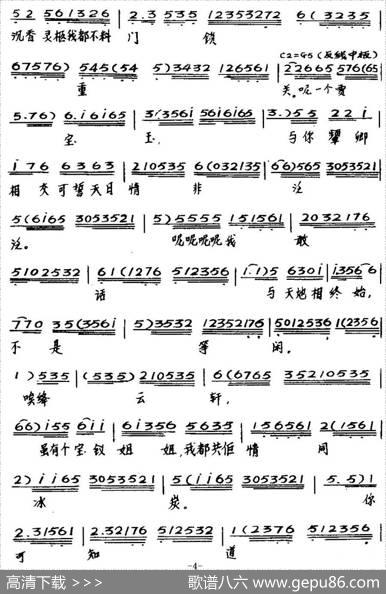 5 2 561326 | 2.3 535 12353272 6 ( 3235
沉香 灵柩我都不料 门 锁
C2=G5 (反线中板)
67576) | 545 (54 5) 3432 126561 | 22665 576(65
重 关。呢一个
5.76) 6.i6i65 | 3(3356i 56i6i65 | 3.)55 22i
宝 玉, 与你 卿
i76 6363 | 210535 6(032135 | 66)565 3053521
相 交 可誓 天日 情 非 泛
5(6i65 3053521 | 5)5555 151561 | 2032176
泛。 呢呢呢呢我 敢
5102532 | 61(1276 512356 | 1.1)5 630i | i3566
话 与天地相终始,
770 35(356i | 5)3532 1235217 | 5012536 1(2356
不 是 等 闲。
1)535 (535) 210535 | 6(6765 35210535
唉绛 云 轩,
66)i55 6ii | 6i356 5635 | 156561 2(1561
虽有个宝钗 姐 姐,我都共佢 情 同
2)ii65 3053521 | 5(ii65 3053521 | 5.5)1
冰 炭。 你
2.31561 | 2.32176 512532 | 1(2376 512356
可 知 道
-4-
高清下载 >>> 歌谱八六 www.gepu86.com